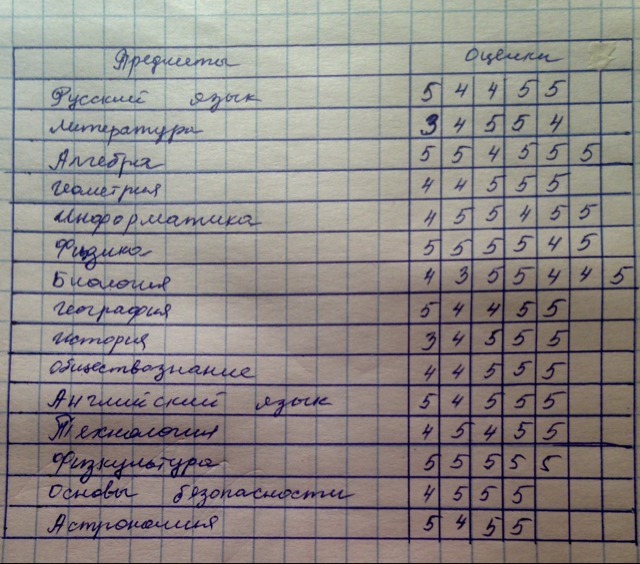 Предметы Оценки
Русский язык 5 4 4 5 5
Литература 3 4 5 5 4
Алгебра 5 5 4 5 5 5
Геометрия 4 4 5 5 5
Информатика 4 5 5 4 5 5
Физика 5 5 5 5 4 5
Биология 4 3 5 5 4 4 5
География 5 4 4 5 5
История 3 4 5 5 5
Обществознание 4 4 5 5 5
Английский язык 5 4 5 5 5
Технология 4 5 4 5 5
Физкультура 5 5 5 5 5
Основы безопасности 4 5 5 5
Астрономия 5 4 5 5